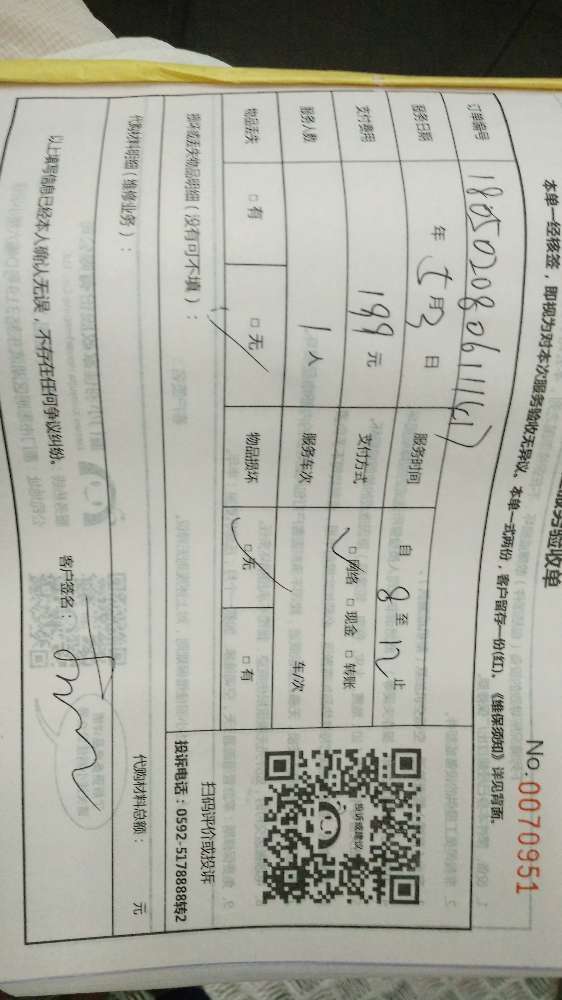 服务验收单
No.0070951
本单一经核签，即视为对本次服务验收无异议。本单一式两份，客户留存一份(红)。《维保须知》详见背面。
订单编号
服务日期 年 月 3 日 服务时间 自 8 至 12 止
支付费用 199 元 支付方式 □ 网络 □ 现金 □ 转账
服务人数 1 人 服务车次 车/次
物品丢失 □ 有 □ 无 物品损坏 □ 无 □ 有
损坏或丢失物品明细（没有可不填）：
代购材料明细（维修业务）：
代购材料总额： 元
投诉或建议
扫码评价或投诉
投诉电话：0592-5178888转2
以上填写信息已经本人确认无误，不存在任何争议纠纷。
客户签名：